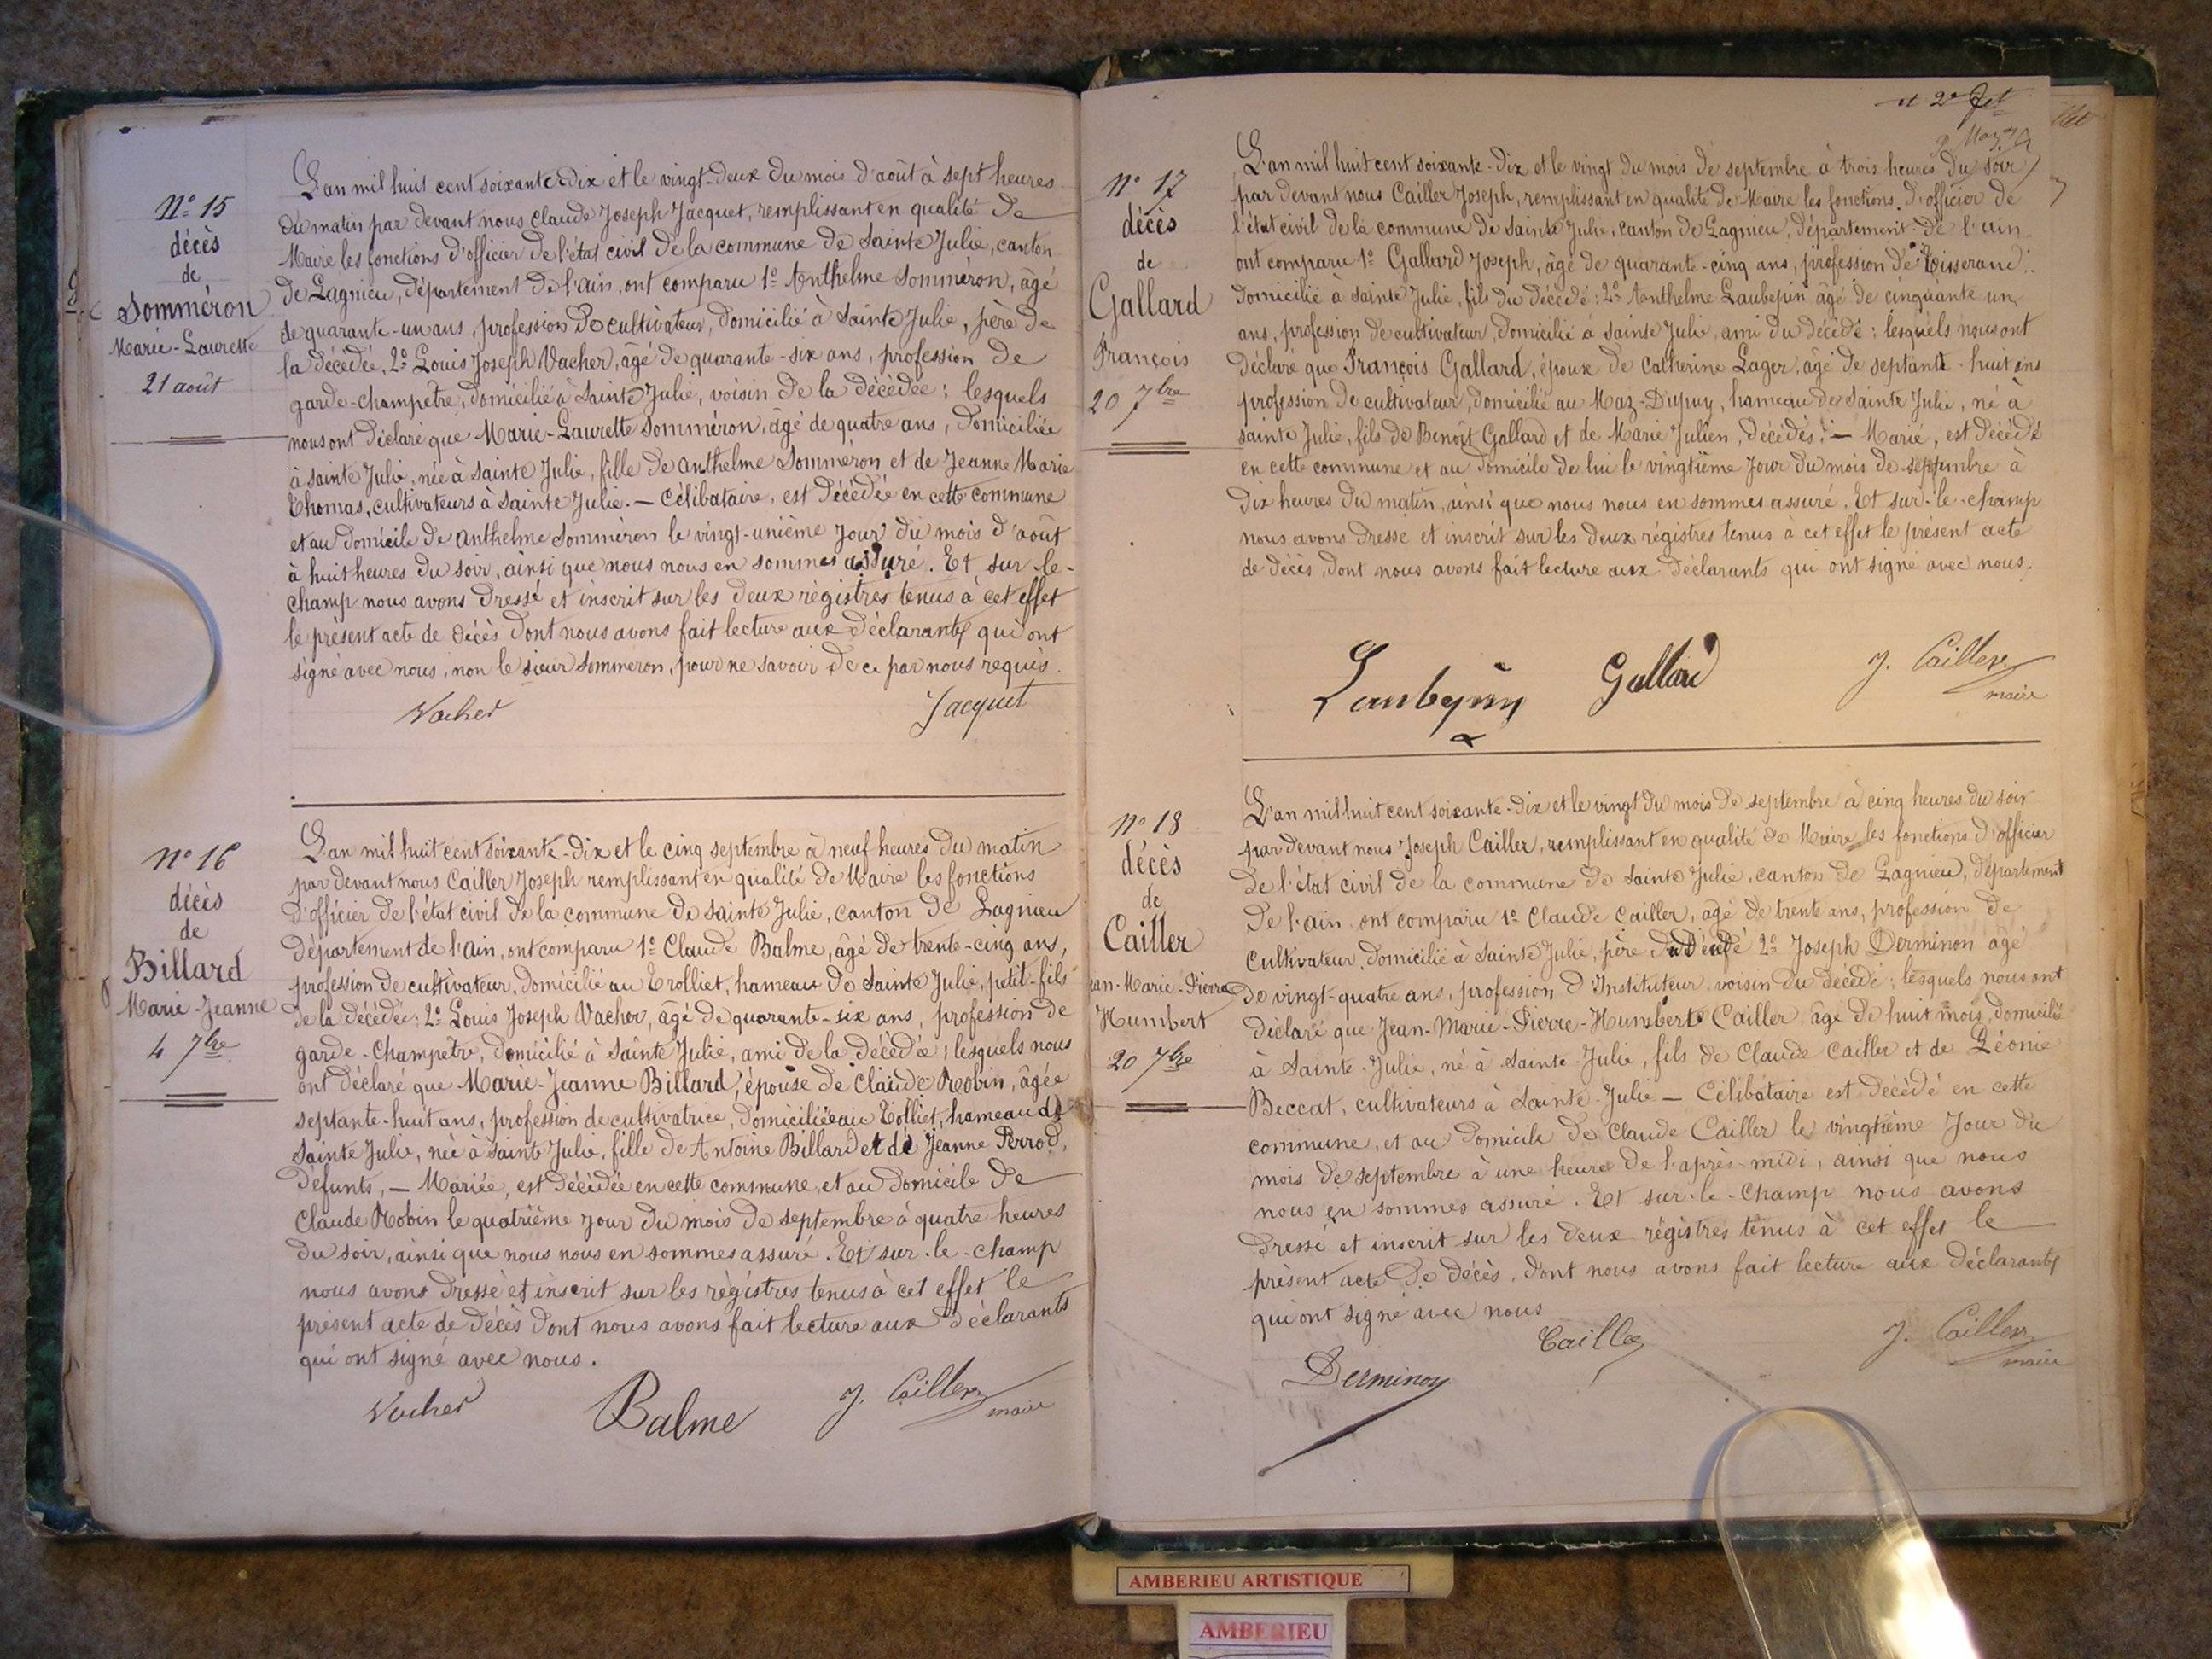 N° 15
décès
de
Somméron
Marie-Laurette
21 août
L'an mil huit cent soixante-dix et le vingt-deux du mois d'août à sept heures
du matin par devant nous Claude Joseph Jacquet, remplissant en qualité de
Maire les fonctions d'officier de l'état civil de la commune de Sainte Julie, canton
de Lagnieu, département de l'ain, ont comparu 1° Anthelme Somméron, âgé
de quarante-un ans, profession de cultivateur, domicilié à Sainte Julie, père de
la décédée, 2° Louis Joseph Vacher, âgé de quarante-six ans, profession de
garde-champêtre, domicilié à Sainte Julie, voisin de la décédée; lesquels
nous ont déclaré que Marie-Laurette Somméron, âgé de quatre ans, domiciliée
à Sainte Julie, née à Sainte Julie, fille de Anthelme Somméron et de Jeanne Marie
Thomas, cultivateurs à Sainte Julie. — Célibataire, est décédée en cette commune
et au domicile de Anthelme Somméron le vingt-unième jour du mois d'août
à huit heures du soir, ainsi que nous nous en sommes assuré. Et sur-le-
champ nous avons dressé et inscrit sur les deux régistres tenus à cet effet
le présent acte de décès dont nous avons fait lecture aux déclarants qui ont
signé avec nous, non le sieur Sommeron, pour ne savoir de ce par nous requis.
Vacher Jacquet
N° 16
décès
de
Billard
Marie-Jeanne
4 7bre
L'an mil huit cent soixante-dix et le cinq septembre à neuf heures du matin
par devant nous Cailler Joseph remplissant en qualité de Maire les fonctions
d'officier de l'état civil de la commune de Sainte Julie, canton de Lagnieu
département de l'ain, ont comparu 1° Claude Balme, âgé de trente-cinq ans,
profession de cultivateur, domicilié au Trolliet, hameau de Sainte Julie, petit-fils
de la décédée; 2° Louis Joseph Vacher, âgé de quarante-six ans, profession de
garde-champêtre, domicilié à Sainte Julie, ami de la décédée; lesquels nous
ont déclaré que Marie-Jeanne Billard, épouse de Claude Robin, âgée
septante-huit ans, profession de cultivatrice, domiciliée au Tolliet, hameau de
Sainte Julie, née à Sainte Julie, fille de Antoine Billard et de Jeanne Perrod,
défunts, — Mariée, est décédée en cette commune et au domicile de
Claude Robin le quatrième jour du mois de septembre à quatre heures
du soir, ainsi que nous nous en sommes assuré. Et sur-le-champ
nous avons dressé et inscrit sur les régistres tenus à cet effet le
présent acte de décès dont nous avons fait lecture aux déclarants
qui ont signé avec nous.
Vacher Balme J. Cailler maire
et 2e
N° 17
décès
de
Gallard
François
20 7bre
L'an mil huit cent soixante-dix et le vingt du mois de septembre à trois heures du soir
par devant nous Cailler Joseph, remplissant en qualité de Maire les fonctions d'officier de
l'état civil de la commune de Sainte Julie, canton de Lagnieu, département de l'ain
ont comparu 1° Gallard Joseph, âgé de quarante-cinq ans, profession de Tisserand
domicilié à Sainte Julie, fils du décédé; 2° Anthelme Laubepin âgé de cinquante un
ans, profession de cultivateur, domicilié à Sainte Julie, ami du décédé; lesquels nous ont
déclaré que François Gallard, époux de Catherine Lager, âgé de septante-huit ans
profession de cultivateur, domicilié au Maz-Dupuy, hameau de Sainte Julie, né à
Sainte Julie, fils de Benoît Gallard et de Marie Julien, décédés; — Marié, est décédé
en cette commune et au domicile de lui le vingtième jour du mois de septembre à
dix heures du matin, ainsi que nous nous en sommes assuré. Et sur-le-champ
nous avons dressé et inscrit sur les deux régistres tenus à cet effet le présent acte
de décès, dont nous avons fait lecture aux déclarants qui ont signé avec nous.
Laubepin Gallard J. Cailler maire
N° 18
décès
de
Cailler
Jean-Marie-Pierre
Humbert
20 7bre
L'an mil huit cent soixante-dix et le vingt du mois de septembre à cinq heures du soir
par devant nous Joseph Cailler, remplissant en qualité de Maire les fonctions d'officier
de l'état civil de la commune de Sainte Julie, canton de Lagnieu, département
de l'ain, ont comparu 1° Claude Cailler, âgé de trente ans, profession de
cultivateur, domicilié à Sainte Julie, père du décédé 2° Joseph Derminon âgé
de vingt-quatre ans, profession d'Instituteur, voisin du décédé; lesquels nous ont
déclaré que Jean-Marie-Pierre-Humbert Cailler, âgé de huit mois, domicilié
à Sainte-Julie, né à Sainte-Julie, fils de Claude Cailler et de Léonie
Beccat, cultivateurs à Sainte-Julie — Célibataire est décédé en cette
commune, et au domicile de Claude Cailler le vingtième jour du
mois de septembre à une heure de l'après-midi, ainsi que nous
nous en sommes assuré. Et sur-le-champ nous avons
dressé et inscrit sur les deux régistres tenus à cet effet le
présent acte de décès, dont nous avons fait lecture aux déclarants
qui ont signé avec nous
Derminon Cailler J. Cailler maire
AMBERIEU ARTISTIQUE
AMBERIEU